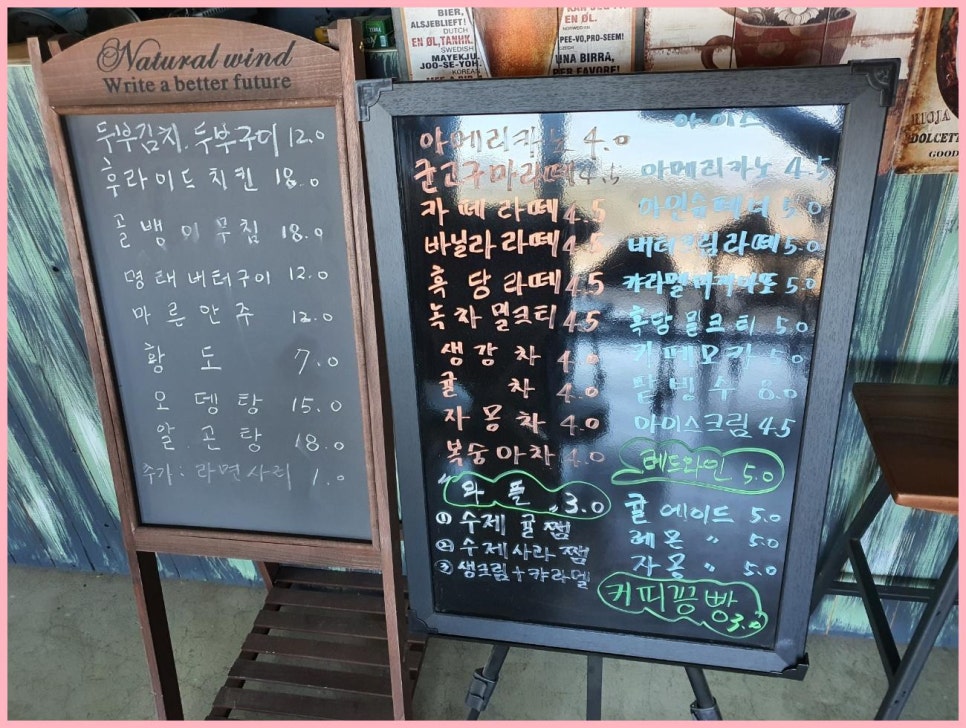 BIER,
ALSJEBLIEFT!
DUTCH
EN ØL, TAKK.
SWEDISH
MAYEKJU,
JOO-SE-YO.
KOREAN
EN ØL.
NORWEGIAN
PEE-VO, PRO-SEEM!
UNA BIRRA,
PER FAVORE!
RIOJA
DOLCET
GOOD
Natural wind
Write a better future
두부김치. 두부구이 12.0
후라이드 치킨 18.0
골뱅이무침 18.0
명태버터구이 12.0
마른안주 12.0
황도 7.0
오뎅탕 15.0
알곤탕 18.0
추가: 라면사리 1.0
아메리카노 4.0
군고구마라떼 4.5
카페라떼 4.5
바닐라라떼 4.5
흑당라떼 4.5
녹차밀크티 4.5
생강차 4.0
귤차 4.0
자몽차 4.0
복숭아차 4.0
와플 3.0
① 수제 귤쨈
② 수제사과쨈
③ 생크림+캬라멜
아이스
아메리카노 4.5
아인슈페너 5.0
버터크림라떼 5.0
캬라멜마끼아또 5.0
흑당밀크티 5.0
카페모카 5.0
팥빙수 8.0
아이스크림 4.5
레드와인 5.0
귤에이드 5.0
레몬 〃 5.0
자몽 〃 5.0
커피콩빵 3.0